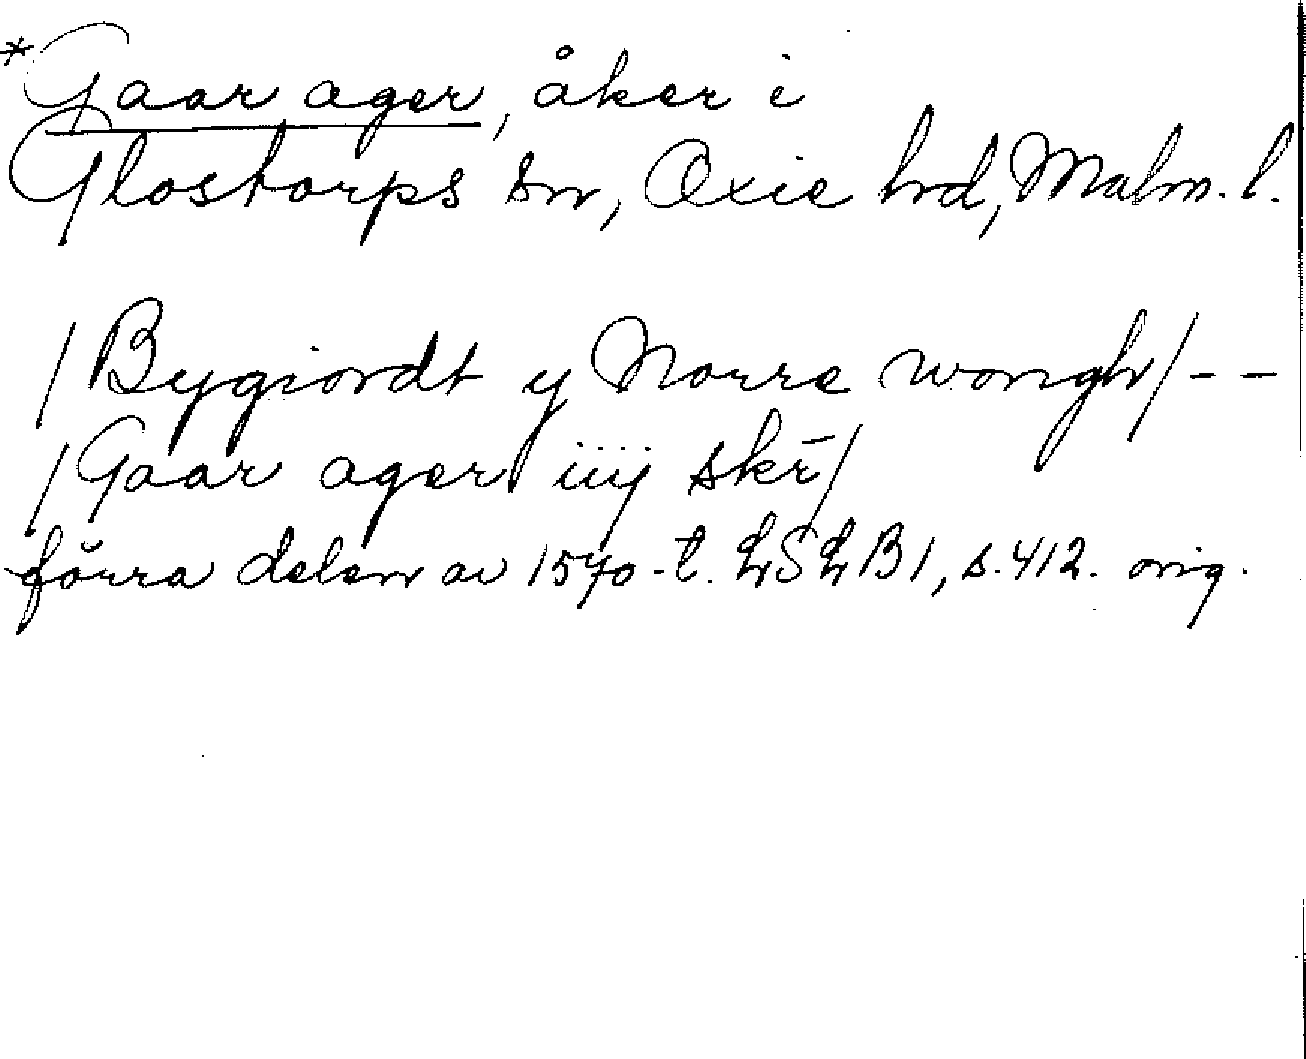 *Gaar ager, åker i
Glostorps sn, Oxie hd, Malm. l.
/Bygiordt y Norre wongh/--
/Gaar ager iiij skr̄/
förra delen av 1570-t. LSLB1, s. 412. orig.